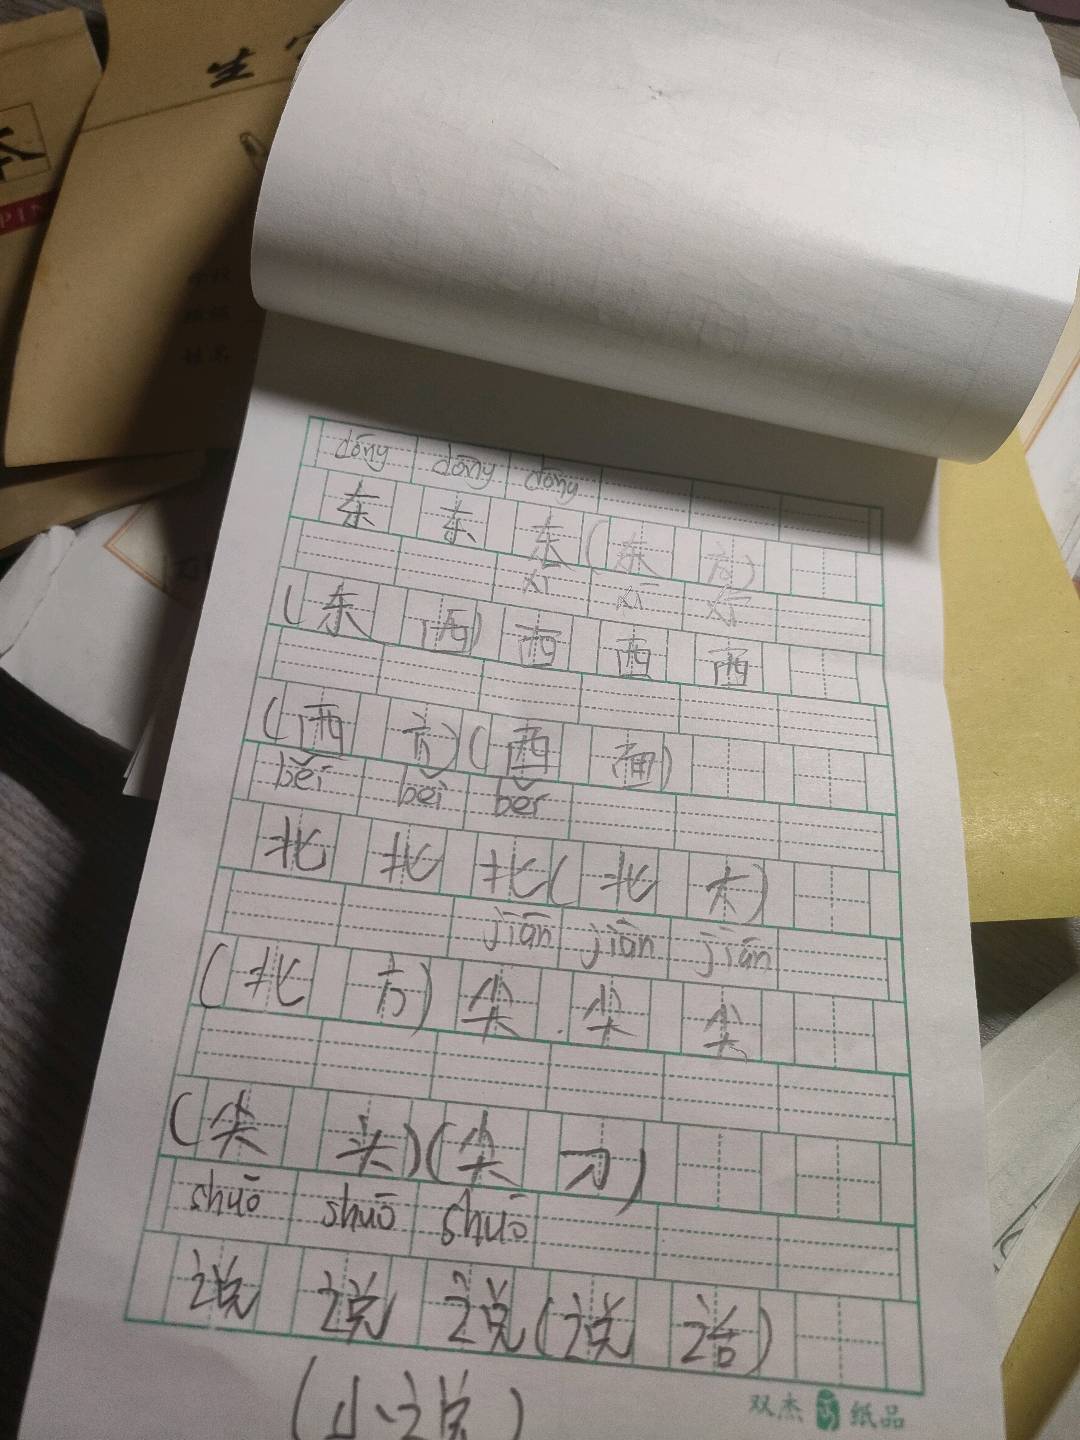 生字
本
PIN
dōng dōng dōng
东 东 东 (东 方)
(东 西) 西 西 西
(西 方) (西 面)
běi běi běi
北 北 北 (北 大)
jiān jiān jiān
(北 方) 尖 尖 尖
(尖 头) (尖 刀)
shuō shuō shuō
说 说 说 (说 话)
(小 说)
双杰 纸品